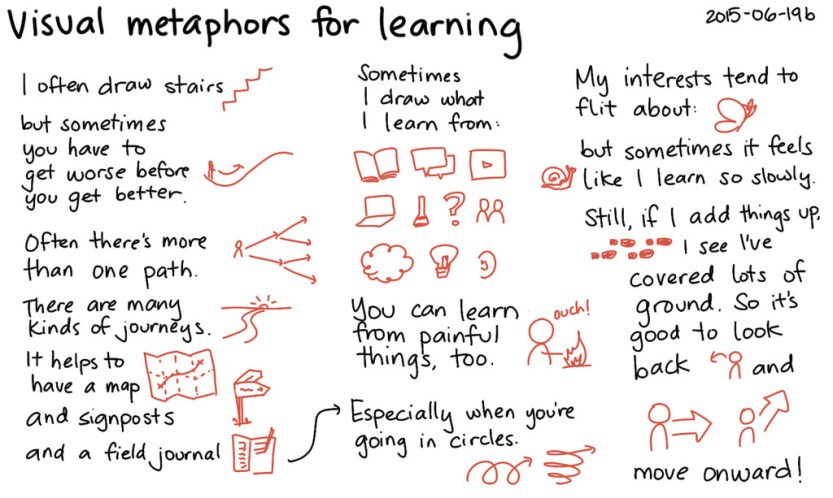 Visual metaphors for learning
2015-06-19b
I often draw stairs
but sometimes
you have to
get worse before
you get better.
Often there's more
than one path.
There are many
kinds of journeys.
It helps to
have a map
and signposts
and a field journal
Especially when you're
going in circles.
Sometimes
I draw what
I learn from:
?
You can learn
from painful
things, too.
ouch!
My interests tend to
flit about:
but sometimes it feels
like I learn so slowly.
Still, if I add things up,
I see I've
covered lots of
ground. So it's
good to look
back and
move onward!